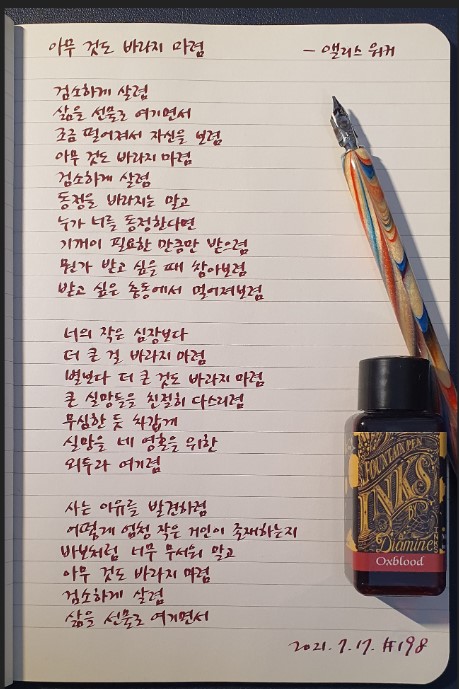 아무 것도 바라지 마렴 - 앨리스 워커
검소하게 살렴
삶을 선물로 여기면서
조금 떨어져서 자신을 보렴
아무 것도 바라지 마렴
검소하게 살렴
동정을 바라지는 말고
누가 너를 동정한다면
기꺼이 필요한 만큼만 받으렴
뭔가 받고 싶을 때 참아보렴
받고 싶은 충동에서 멀어져보렴
너의 작은 심장보다
더 큰 걸 바라지 마렴
별보다 더 큰 것도 바라지 마렴
큰 실망들을 친절히 다스리렴
무심한 듯 차갑게
실망을 네 영혼을 위한
외투라 여기렴
사는 이유를 발견하렴
어떻게 엄청 작은 거인이 존재하는지
바보처럼 너무 무서워 말고
아무 것도 바라지 마렴
검소하게 살렴
삶을 선물로 여기면서
2021. 7. 17. #198
FOUNTAIN PEN
INKS
BY
Diamine
Oxblood